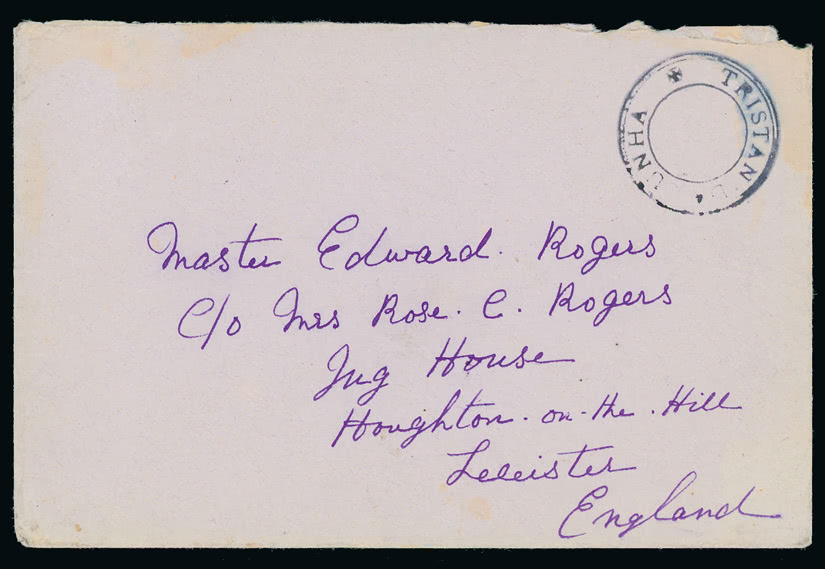 TRISTAN UNHA
Master Edward. Rogers
C/o Mrs Rose. C. Rogers
Jug House
Houghton-on-the-Hill
Leceister
England